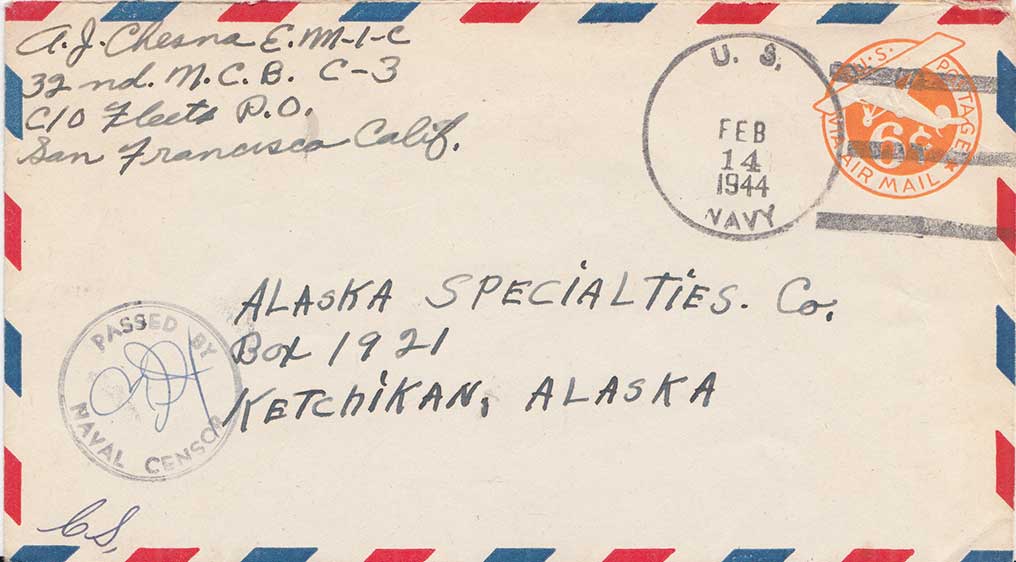 A. J. Chesna E.M-1-C
32nd. M.C.B. C-3
C/O Fleets P.O.
San Francisco Calif.
U. S.
FEB
14
1944
NAVY
U.S. POSTAGE
6¢
VIA AIR MAIL
ALASKA SPECIALTIES. Co.
Box 1921
KETCHIKAN, ALASKA
PASSED BY
NAVAL CENSOR
CS,